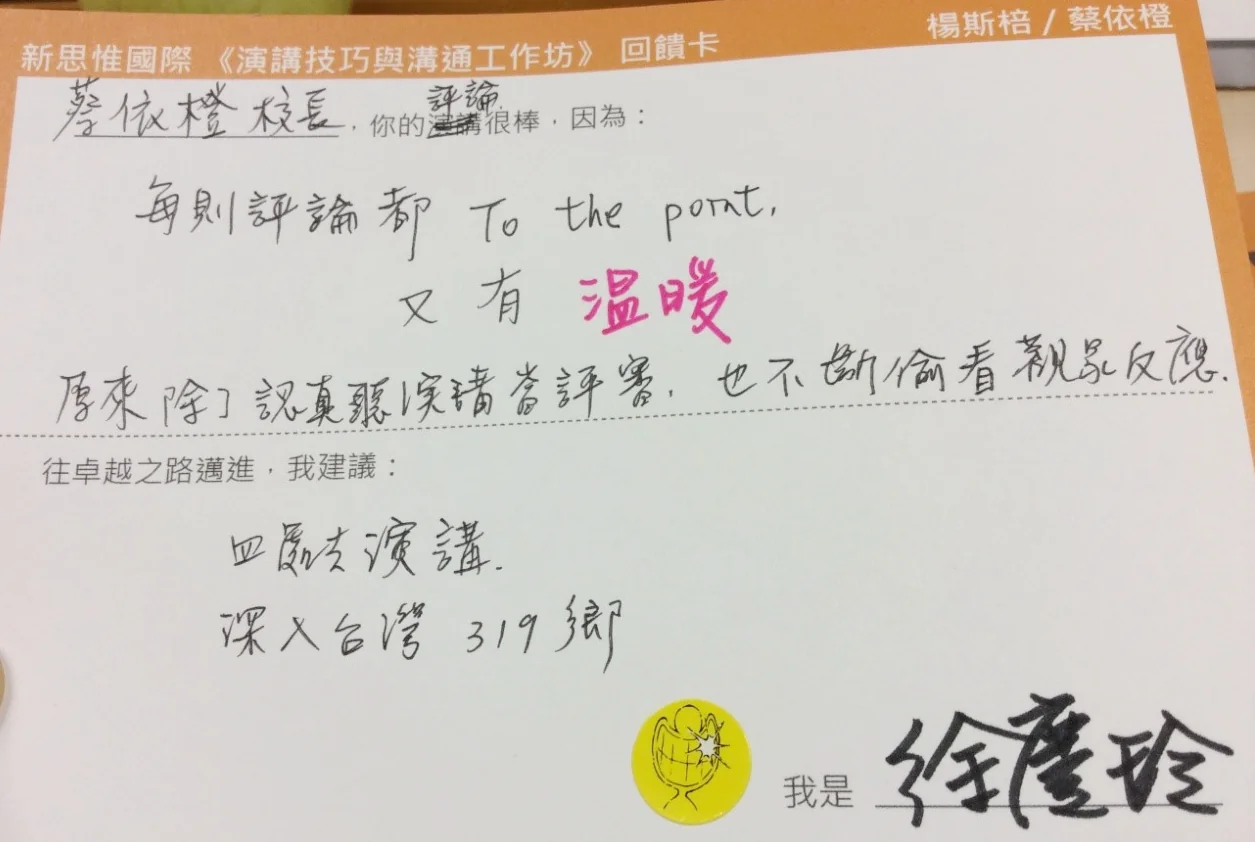 新思惟國際《演講技巧與溝通工作坊》回饋卡
楊斯棓 / 蔡依橙
蔡依橙校長,你的評論很棒,因為:
每則評論都 To the point,
又有 溫暖
原來除了認真聽演講當評審,也不斷偷看觀眾反應.
往卓越之路邁進,我建議:
四處去演講.
深入台灣 319 鄉
我是 徐慶玲